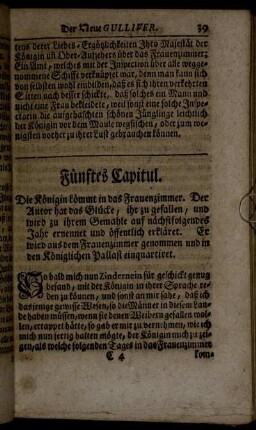 Der Neue GULLIVER. 39
tens derer Liebes-Ergötzlichkeiten Ihro Majestät der
Königin uñ Ober-Aufsehers über das Frauenzimmer:
Ein Amt, welches mit der Inspection über alle wegge-
nommene Schiffe verknüpfet war, denn man kann sich
von selbsten wohl einbilden, daß es sich ihren verkehrten
Sitten nach besser schickte, daß solches ein Mann und
nicht eine Frau bekleidete, weil sonst eine solche Inspe-
ctorin die aufgehaschten schönen Jünglinge leichtlich
der Königin vor dem Maule wegfischen, oder zum we-
nigsten vorher zu ihrer Lust gebrauchen können.
Fünftes Capitul.
Die Königin kömmt in das Frauenzimmer. Der
Autor hat das Glücke, ihr zu gefallen, und
wird zu ihrem Gemahle auf nächstfolgendes
Jahr ernennet und öffentlich erkläret. Er
wird aus dem Frauenzimmer genommen und in
den Königlichen Pallast einquartiret.
So bald mich nun Zindernein für geschickt genug
befand, mit der Königin in ihrer Sprache re-
den zu können, und sonst an mir sahe, daß ich
das jenige gewisse Wesen, so die Männer in diesem Lan-
de haben müssen, wenn sie denen Weibern gefallen wol-
len, ertappet hätte, so gab er mir zu vernehmen, wie ich
mich nun fertig halten mögte, der Königin mich zu zei-
gen, als welche folgenden Tages in das Frauenzimmer
C 4 kom-